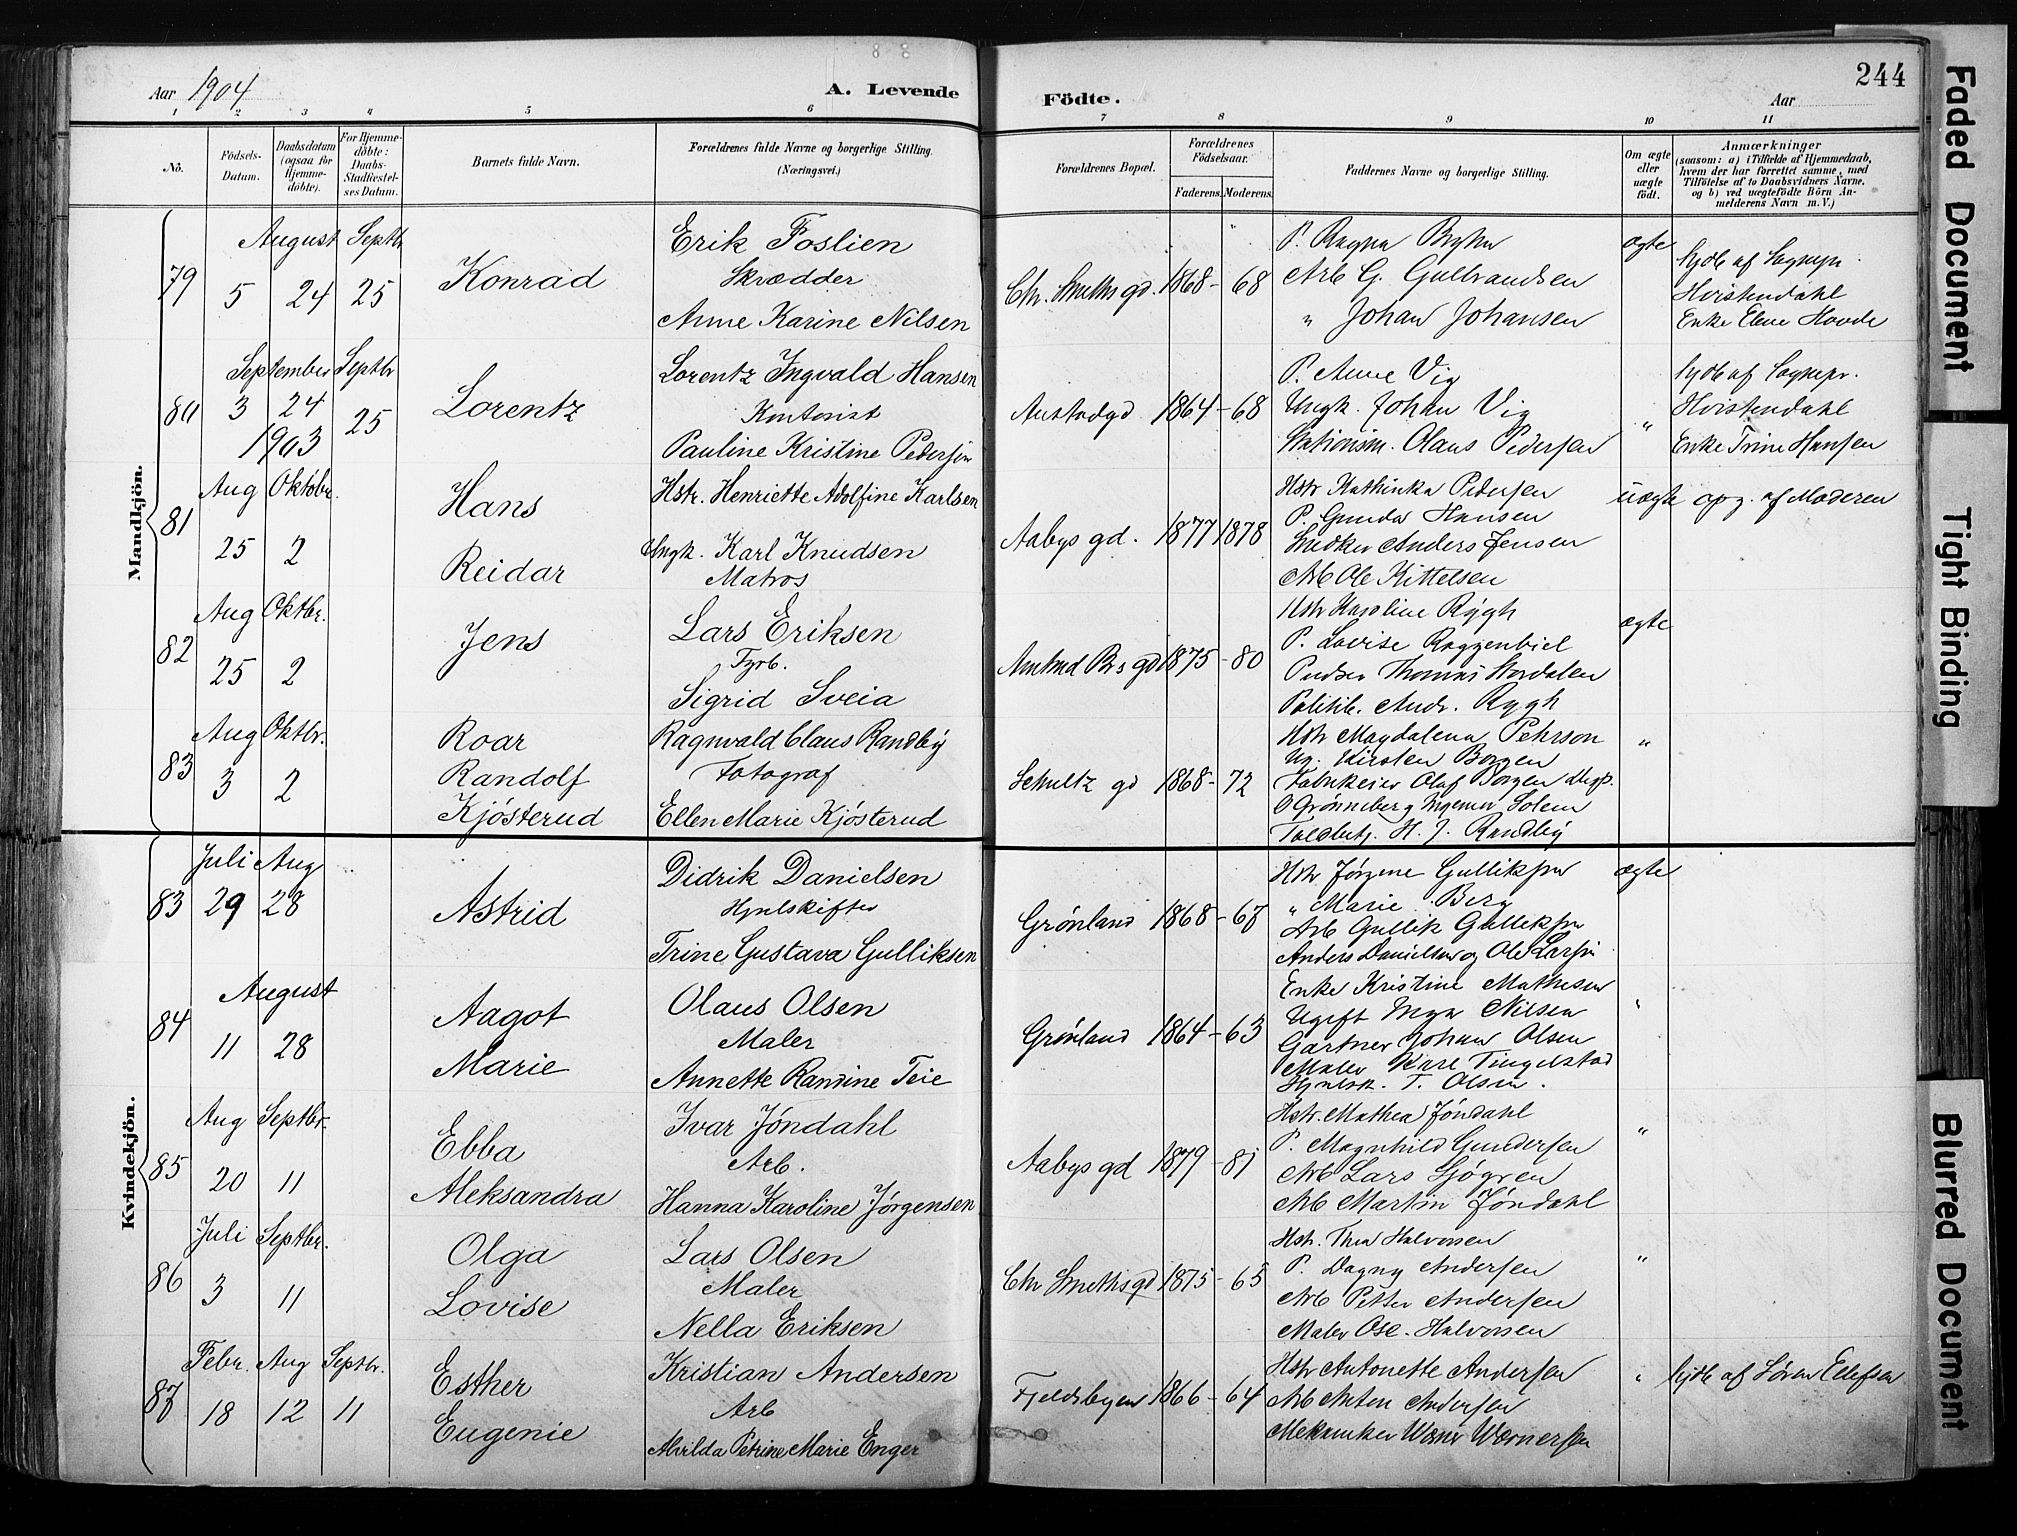 Aar 1904
A. Levende
Födte.
Aar
244
1 2 3 4 5 6 7 8 9 10 11
No.
Födsels-Datum.
Daabsdatum (ogsaa for Hjemme-döbte).
For Hjemme-döbte: Daabs-Stadfæstel-ses Datum.
Barnets fulde Navn.
Forældrenes fulde Navne og borgerlige Stilling. (Næringsvei.)
Forældrenes Bopæl.
Forældrenes Födselsaar.
Faderens. Moderens.
Faddernes Navne og borgerlige Stilling.
Om ægte eller uægte födt.
Anmærkninger
(saasom: a) i Tilfælde af Hjemmedaab, hvem der har forrettet samme, med Tilföielse af to Daabsvidners Navne, og b) ved uægtefödte Börn An-melderens Navn m. V.)
Mandkjön.
79
August Septbr
5 24 25
Konrad
Erik Foslien
Skrædder
Anne Karine Nilsen
Chr. Smeths gd. 1868 - 68
P. Ragna
Arb G. Gulbrandsen
" Johan Johansen
ægte
hjdb af Sognepr.
Hvistendahl
Enke Elene Hovde
80
September Septbr
3 24 25
Lorentz
Lorentz Ingvald Hansen
Kontorist
Pauline Kristine Pedersen
Austadgd 1864 - 68
P. Anne Vig
Ungk. Johan Vig
Stationsm. Olaus Pedersen
"
hjdb af Sognepr.
Hvistendahl
Enke Trine Hansen
81
1903
Aug Oktobr.
25 2
Hans
Reidar
Hstr. Henriette Adolfine Karlsen
Ungk. Karl Knudsen
Matros
Aabys gd. 1877 1878
Hstr Mathinka Pedersen
P. Gunda Hansen
Snedker Anders Jensen
Arb Ole Kittelsen
uægte
opg. af Moderen
82
Aug Oktbr.
25 2
Jens
Lars Eriksen
Fyrb.
Sigrid Sveia
Amtmd Bs gd 1875 - 80
Hstr Karoline Rygh
P. Lovise Roggenbiel
Pudser Thomas Hordalen
Politib. Andr. Rygh
ægte
83
Aug Oktbr.
3 2
Roar
Randolf
Kjösterud
Ragnvald Claus Randby
Fotograf
Ellen Marie Kjösterud
Schultz gd 1868 - 72
Hstr Magdalena Pehrson
Ug. Kirsten Borgen
Fabrikeier Olaf Borgen
O Grönneberg Ingeniör Solem
Toldbetj. H. J. Randby
"
Kvindekjön.
83
Juli Aug
29 28
Astrid
Didrik Danielsen
Hjulskifter
Trine Gustava Gulliksen
Grönland 1868 - 67
Hstr Jörgine Gulliksen
" Marie Berg
Arb Gullik Gulliksen
Anders Danielsen og Ole Larsen
ægte
84
August
11 28
Aagot
Marie
Olaus Olsen
Maler
Annette Randine Teie
Grönland 1864 - 63
Enke Kristine Mathisen
Ugift Inga Nilsen
Gartner Johan Olsen
Maler Karl Tingelstad
Hjulsk. T. Olsen.
"
85
Aug Septbr.
20 11
Ebba
Aleksandra
Ivar Jöndahl
Arb.
Hanna Karoline Jörgensen
Aabys gd 1879 - 81
Hstr. Mathea Jöndahl
P. Magnhild Gundersen
Arb Lars Sjögren
Arb Martin Jöndahl
"
86
Juli Septbr.
3 11
Olga
Lovise
Lars Olsen
Maler
Nella Eriksen
Chr Smeths gd 1875 - 65
Hstr. Thea Halvorsen
P. Dagny Andersen
Arb Petter Andersen
Maler Osc. Halvorsen
"
87
Febr. Aug Septbr.
18 12 11
Esther
Eugenie
Kristian Andersen
Arb
Alvilda Petrine Marie Enger
Fjeldsbyen 1866 - 64
Hstr Antonette Andersen
Arb Anton Andersen
Mekaniker Werner Wernersen
"
hjdb af Sören Ellefsen
Faded Document
Tight Binding
Blurred Document